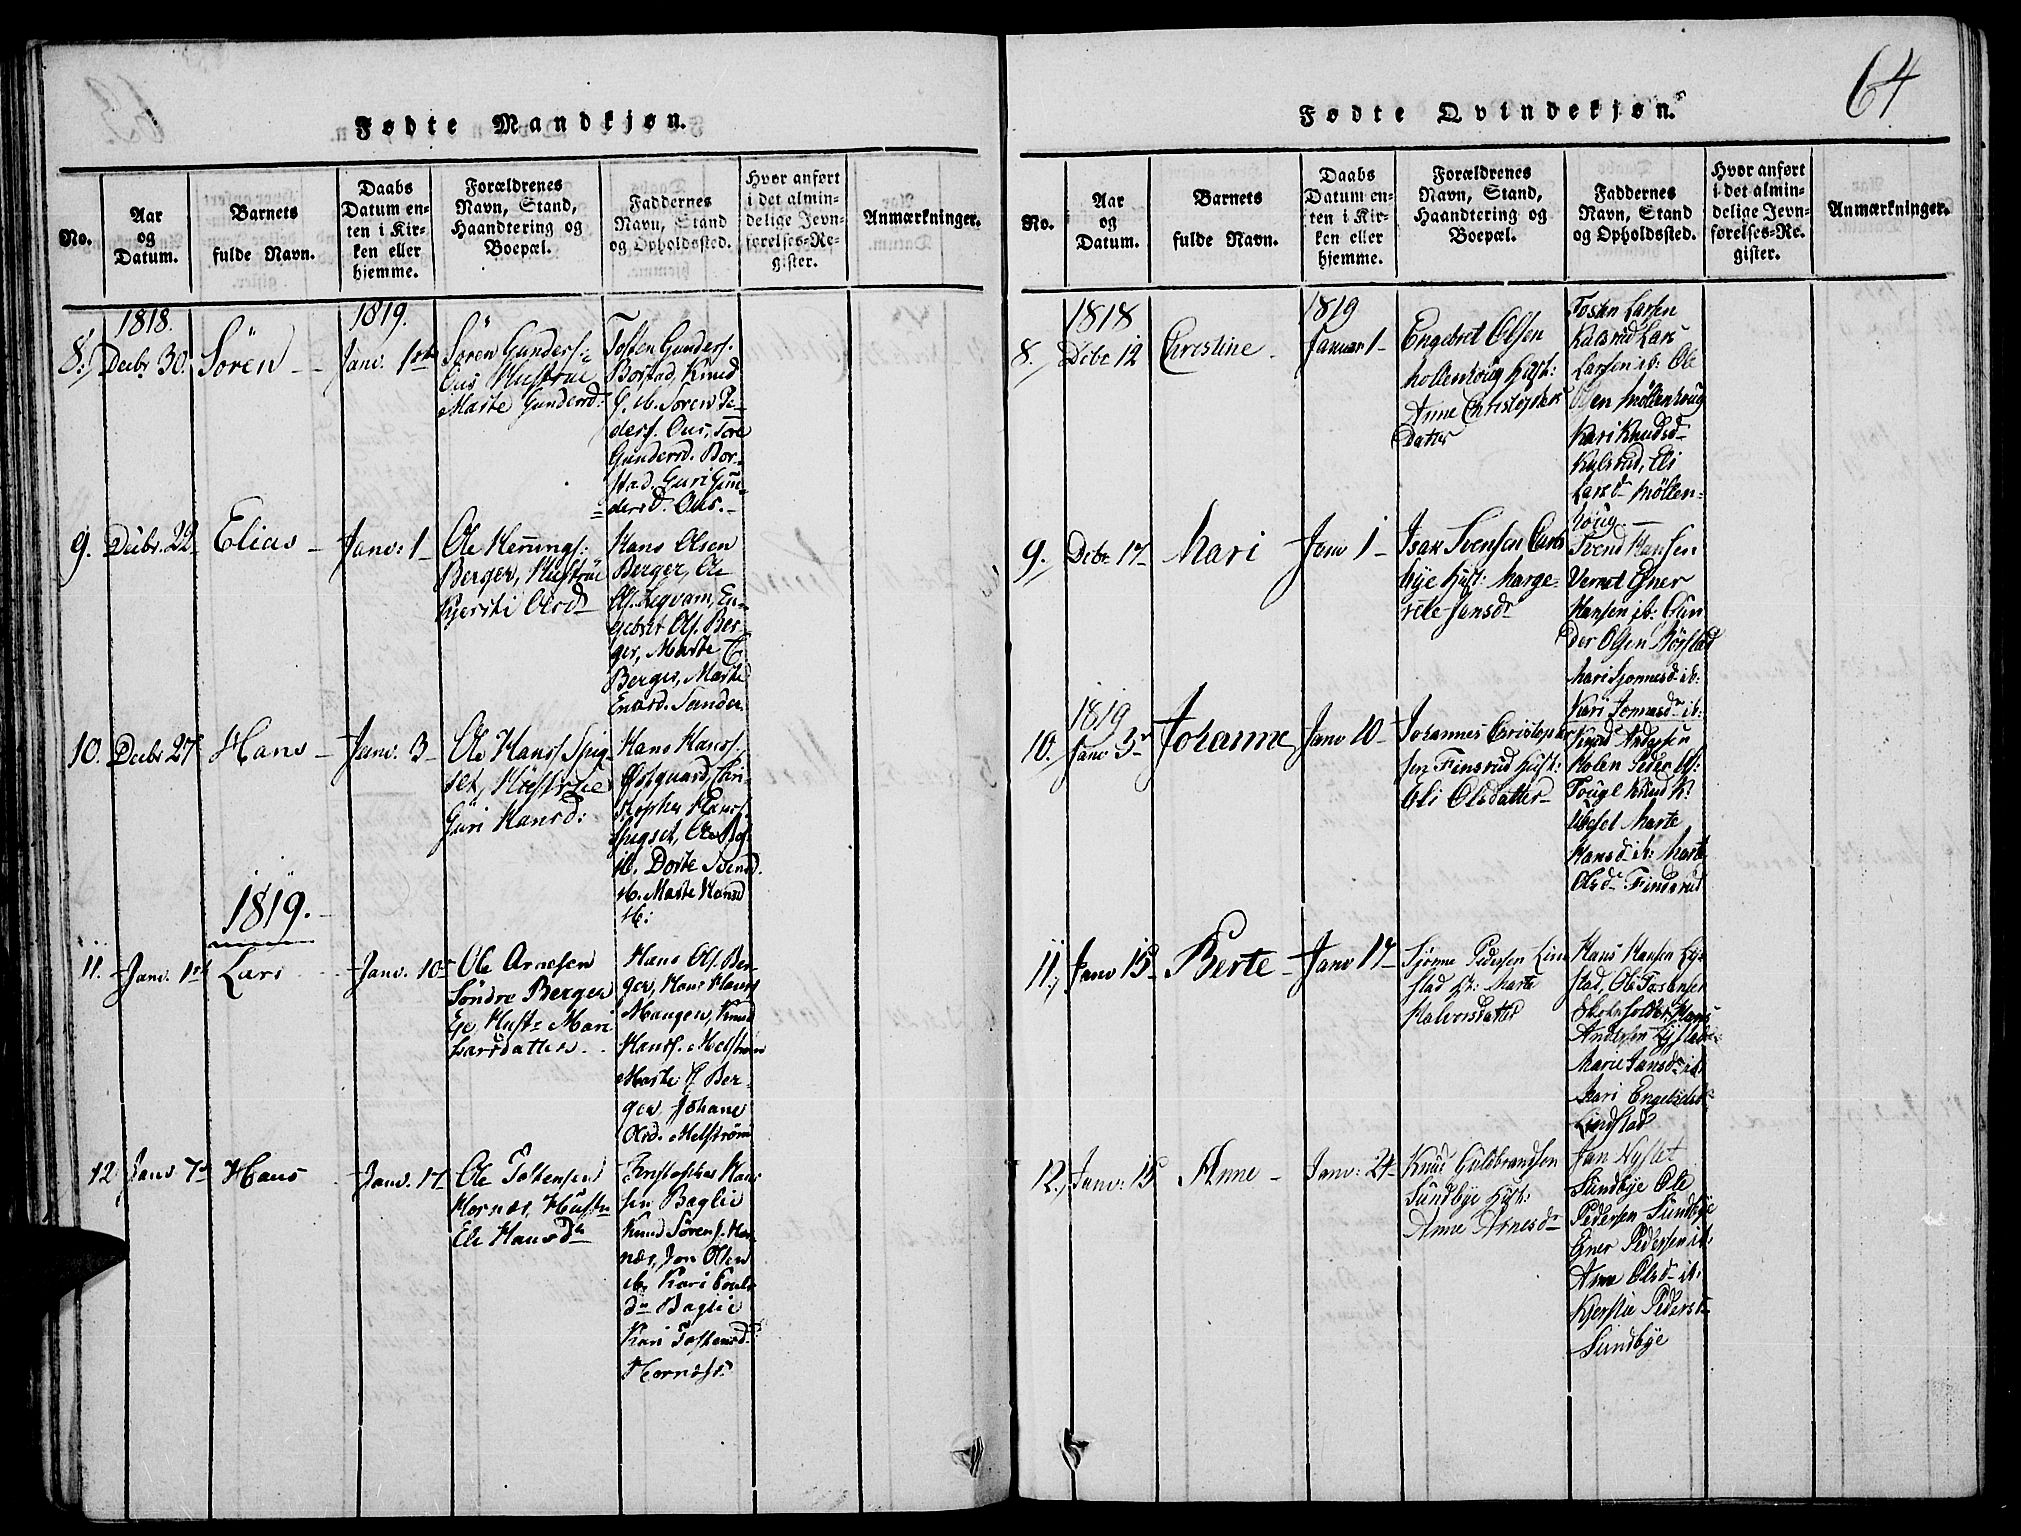 64
Fødte Mandkjøn.
No.
Aar
og
Datum.
Barnets
fulde Navn.
Daabs
Datum en-
ten i Kir-
ken eller
hjemme.
Forældrenes
Navn, Stand,
Haandtering og
Boepæl.
Faddernes
Navn, Stand
og Opholdssted.
Hvor anført
i det almin-
delige Jevn-
førelses-Re-
gister.
Anmærkninger.
1818.
1819.
8.
Decbr 30.
Sören
Janv. 1ste
Sören Gunders:
Ous Hustrue
Marte Gundersd:
Tosten Gunders.
Borstad, Knud
G. ib. Soren Pe-
ders. Ous, Tore
Gundersd. Bor-
stad. Guri Gun-
dersd. Ous.
9.
Decbr. 22
Elias
Janv: 1
Ole
Berger, Hustrue
Kjersti Olsd
Hans Olsen
Berger, Ole
Ols. Legvam, En-
gebret Ols. Ber-
ger, Marte
Berger, Marte
Sander
10.
Decbr 27
Hans
Janv. 3
Ole Hans. Spig-
set, Hustrue
Guri Hansd:
Hans Hans.
Østguard, Chri-
stopher Hans.
Spigset, Ole
ib. Dorte Svensd.
ib. Marte Hansd
ib:
1819.
11.
Janv. 1ste
Lars
Janv. 10
Ole Arnesen
Söndre Berger
Eje Hust Mari
Larsdatter
Hans Ols. Ber-
ger, Hans Hans
Maugen, Knud
Hans. Melstrøm
Marte Ber-
ger, Johane
Olsd. Melstrøm
12
Janv. 7de
Hans
Janv. 17
Ole Tostensen
Hornæs, Hust
Ele Hansd
Kristopher Han-
sen Baglie
Knud Sörens. Hor-
næs, Jon Olsen
ib. Kari
Baglie
Kari Tostensd.
Hornæs
Fødte Qvindekjøn.
No.
Aar
og
Datum.
Barnets
fulde Navn.
Daabs
Datum en-
ten i Kir-
ken eller
hjemme.
Forældrenes
Navn, Stand,
Haandtering og
Boepæl.
Faddernes
Navn, Stand
og Opholdssted.
Hvor anført
i det almin-
delige Jevn-
førelses-Re-
gister.
Anmærkninger.
1818
1819
8.
Decbr 12
Christine
Januar 1
Engebret Olsen
Möllerhoug Hust:
Anne Christophers
datter
Tosten Larsen
Kulsrud Lars
Larsen ib: Ole
Olsen Möllerhoug
Kari Knudsd
Kulsrud, Eli
Larsd Möller-
houg
9.
Decbr 17
Mari
Janv 1
Isak Svensen
bye Hust: Marge-
rete Jansd
Svend Hansen
Egner
Hansen ib: Gun-
der Olsen Börstad
Mari ib:
Kari ib:
1819
10.
Janv 3
Johanne
Janv 10
Johannes Christopher
sen Finsrud Hust:
Eli Olsdatter
Knud Andersen
Holen Peder
Knud K:
Marte
Hansd ib: Marte
Olsd Finsrud
11.
Janv 15
Berte
Janv 17
Sjönne Pedersen Lin
stad H: Marte
Halvorsdatter
Hans Hansen
stad, Ole Tostensen
Skoleholder, Hans
Andersen
Marie Jansd ib:
Kari
Lindstad
12.
Janv: 15
Anne
Janv: 24
Knud Guldbrandsen
Sundbye Hust:
Anne Arnesd
Jan
Sundbye Ole
Pedersen Sundbye
Egner Pedersen ib.
Anne Olsd ib:
Kjerstie Pedersd
Sundbye